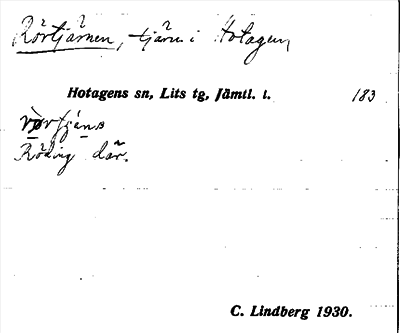 Rörtjärnen, tjärn i Hotagen
Hotagens sn, Lits tg, Jämtl. l. 183
Röding där.
C. Lindberg 1930.